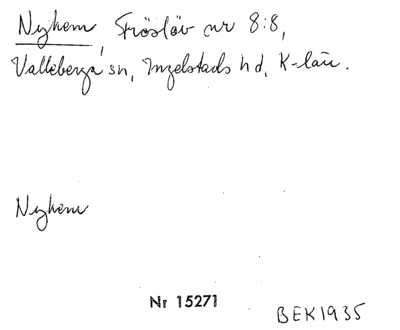 Nyhem, Fröslöv nr 8:8,
Valleberga sn, Ingelstads hd, K-län.
Nyhem
Nr 15271
BEK1935